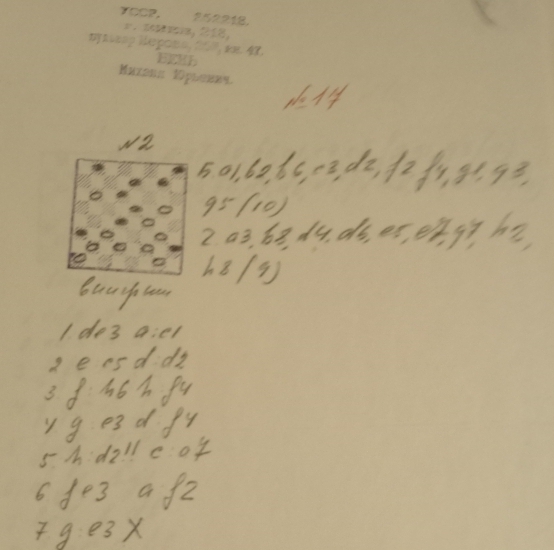 УССР. 252218.
Михаил Юрьевич.
№ 17
№2
Б. a1, b2, b6, c3, d2, f2 f4, g1, g3,
g5 (10)
2. a3, b8, d4, d6, e5, e7, g7, h2,
h8 (9)
выигрыш
1. de3 a:c1
2 e c5 d:d2
3 f:h6 h f4
4 g:e3 d:f4
5. h:d2!! c:a7
6 fe3 a f2
7. g:e3 X